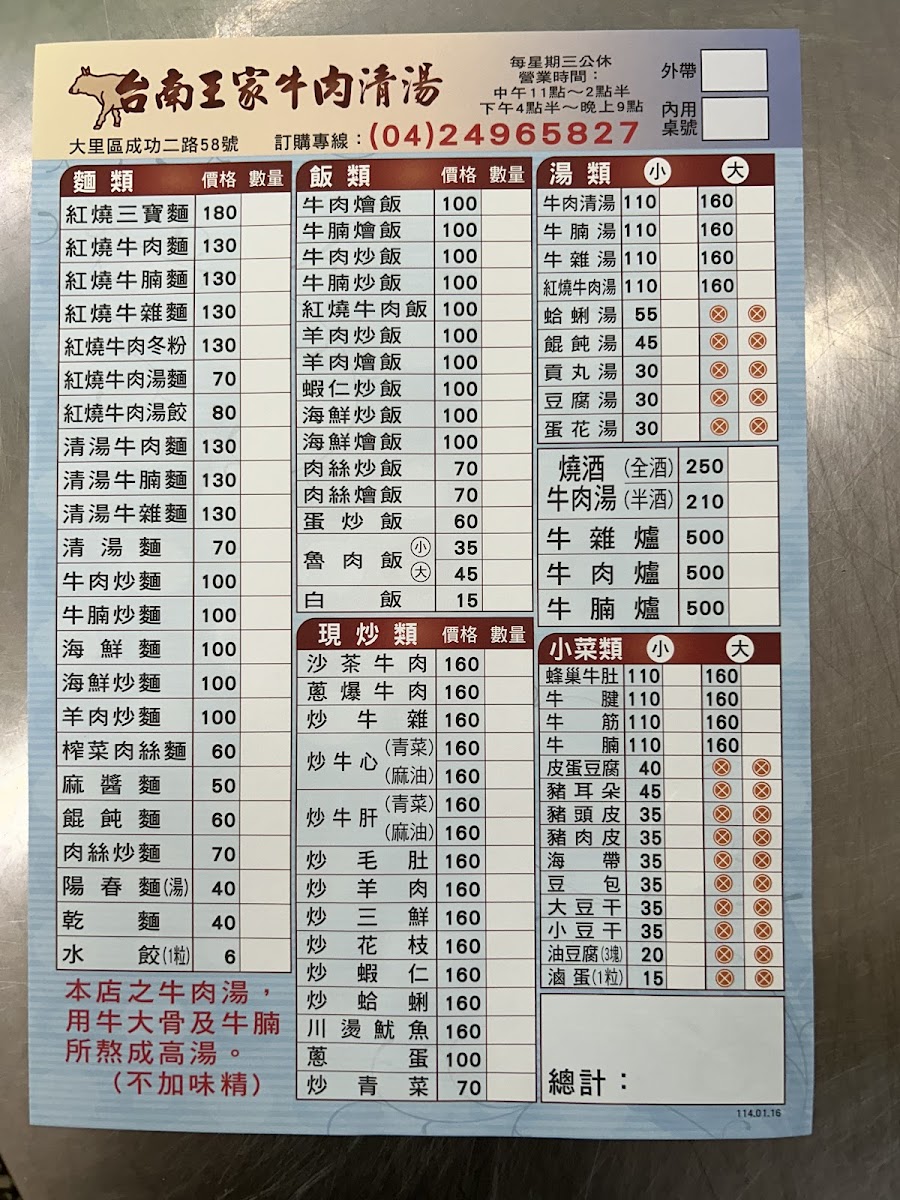 台南王家牛肉清湯
每星期三公休
營業時間：
中午11點～2點半
下午4點半～晚上9點
大里區成功二路58號
訂購專線：(04)24965827
外帶
內用
桌號
麵類 價格 數量
紅燒三寶麵 180
紅燒牛肉麵 130
紅燒牛腩麵 130
紅燒牛雜麵 130
紅燒牛肉冬粉 130
紅燒牛肉湯麵 70
紅燒牛肉湯餃 80
清湯牛肉麵 130
清湯牛腩麵 130
清湯牛雜麵 130
清湯麵 70
牛肉炒麵 100
牛腩炒麵 100
海鮮麵 100
海鮮炒麵 100
羊肉炒麵 100
榨菜肉絲麵 60
麻醬麵 50
餛飩麵 60
肉絲炒麵 70
陽春麵(湯) 40
乾麵 40
水餃(1粒) 6
本店之牛肉湯，
用牛大骨及牛腩
所熬成高湯。
(不加味精)
飯類 價格 數量
牛肉燴飯 100
牛腩燴飯 100
牛肉炒飯 100
牛腩炒飯 100
紅燒牛肉飯 100
羊肉炒飯 100
羊肉燴飯 100
蝦仁炒飯 100
海鮮炒飯 100
海鮮燴飯 100
肉絲炒飯 70
肉絲燴飯 70
蛋炒飯 60
魯肉飯 小 35
大 45
白飯 15
現炒類 價格 數量
沙茶牛肉 160
蔥爆牛肉 160
炒牛雜 160
炒牛心 (青菜) 160
(麻油) 160
炒牛肝 (青菜) 160
(麻油) 160
炒毛肚 160
炒羊肉 160
炒三鮮 160
炒花枝 160
炒蝦仁 160
炒蛤蜊 160
川燙魷魚 160
蔥蛋 100
炒青菜 70
湯類 小 大
牛肉清湯 110 160
牛腩湯 110 160
牛雜湯 110 160
紅燒牛肉湯 110 160
蛤蜊湯 55
餛飩湯 45
貢丸湯 30
豆腐湯 30
蛋花湯 30
燒酒 (全酒) 250
牛肉湯 (半酒) 210
牛雜爐 500
牛肉爐 500
牛腩爐 500
小菜類 小 大
蜂巢牛肚 110 160
牛腱 110 160
牛筋 110 160
牛腩 110 160
皮蛋豆腐 40
豬耳朵 45
豬頭皮 35
豬肉皮 35
海帶 35
豆包 35
大豆干 35
小豆干 35
油豆腐(3塊) 20
滷蛋(1粒) 15
總計：
114.01.16